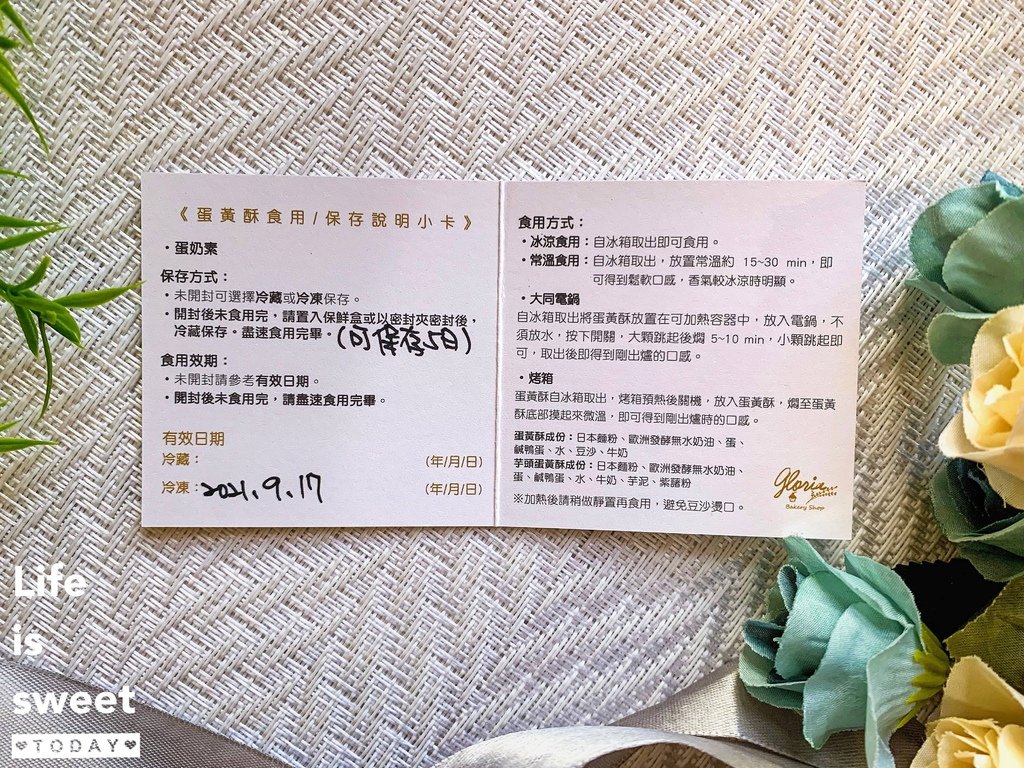 《蛋黃酥食用/保存說明小卡》
・蛋奶素
保存方式：
・未開封可選擇冷藏或冷凍保存。
・開封後未食用完，請置入保鮮盒或以密封夾密封後，
冷藏保存。盡速食用完畢。(可保存5日)
食用效期：
・未開封請參考有效日期。
・開封後未食用完，請盡速食用完畢。
有效日期
冷藏： (年/月/日)
冷凍：2021.9.17 (年/月/日)
食用方式：
・冰涼食用：自冰箱取出即可食用。
・常溫食用：自冰箱取出，放置常溫約 15~30 min，即
可得到鬆軟口感，香氣較冰涼時明顯。
・大同電鍋
自冰箱取出將蛋黃酥放置在可加熱容器中，放入電鍋，不
須放水，按下開關，大顆跳起後燜 5~10 min，小顆跳起即
可，取出後即得到剛出爐的口感。
・烤箱
蛋黃酥自冰箱取出，烤箱預熱後關機，放入蛋黃酥，燜至蛋黃
酥底部摸起來微溫，即可得到剛出爐時的口感。
蛋黃酥成份：日本麵粉、歐洲發酵無水奶油、蛋、
鹹鴨蛋、水、豆沙、牛奶
芋頭蛋黃酥成份：日本麵粉、歐洲發酵無水奶油、
蛋、鹹鴨蛋、水、牛奶、芋泥、紫藷粉
※加熱後請稍做靜置再食用，避免豆沙燙口。
Gloria
Bakery Shop
Life
is
sweet
❤TODAY❤